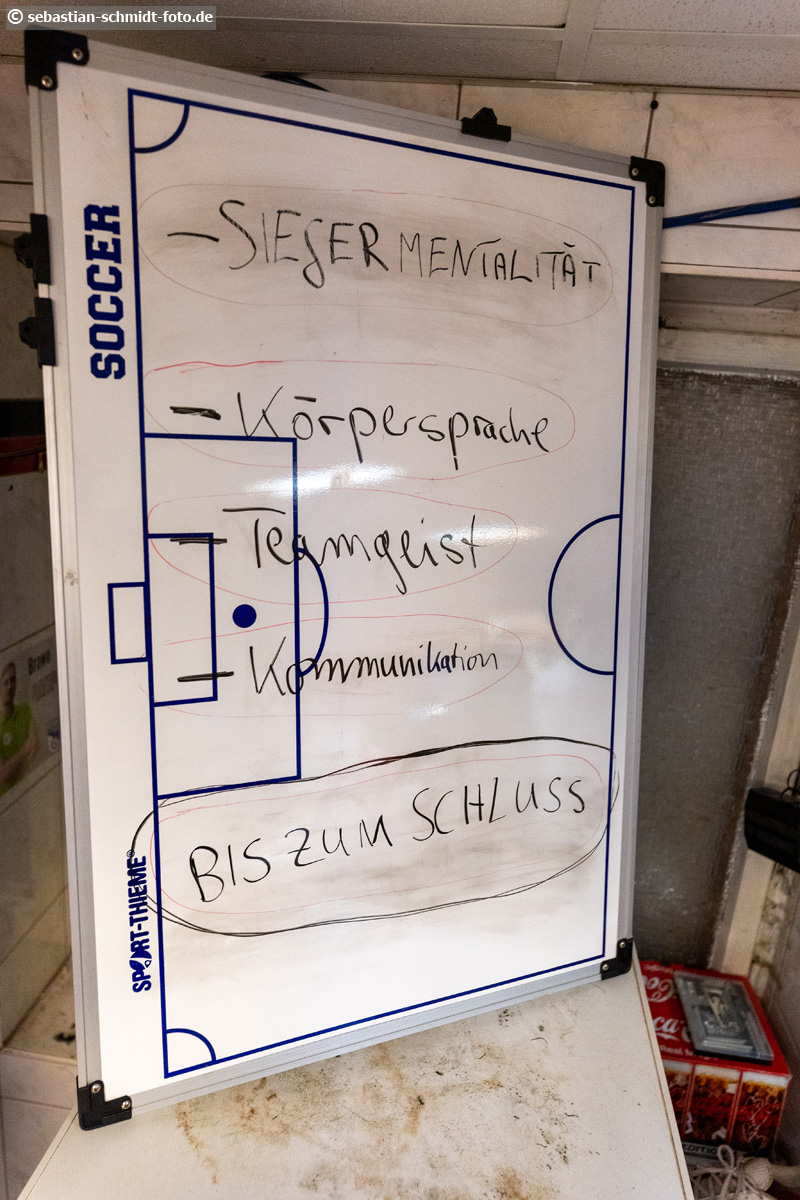 © sebastian-schmidt-foto.de
SOCCER
– SIEGER MENTALITÄT
– Körpersprache
– Teamgeist
– Kommunikation
BIS ZUM SCHLUSS
SPORT-THIEME®
Bravo
Coca